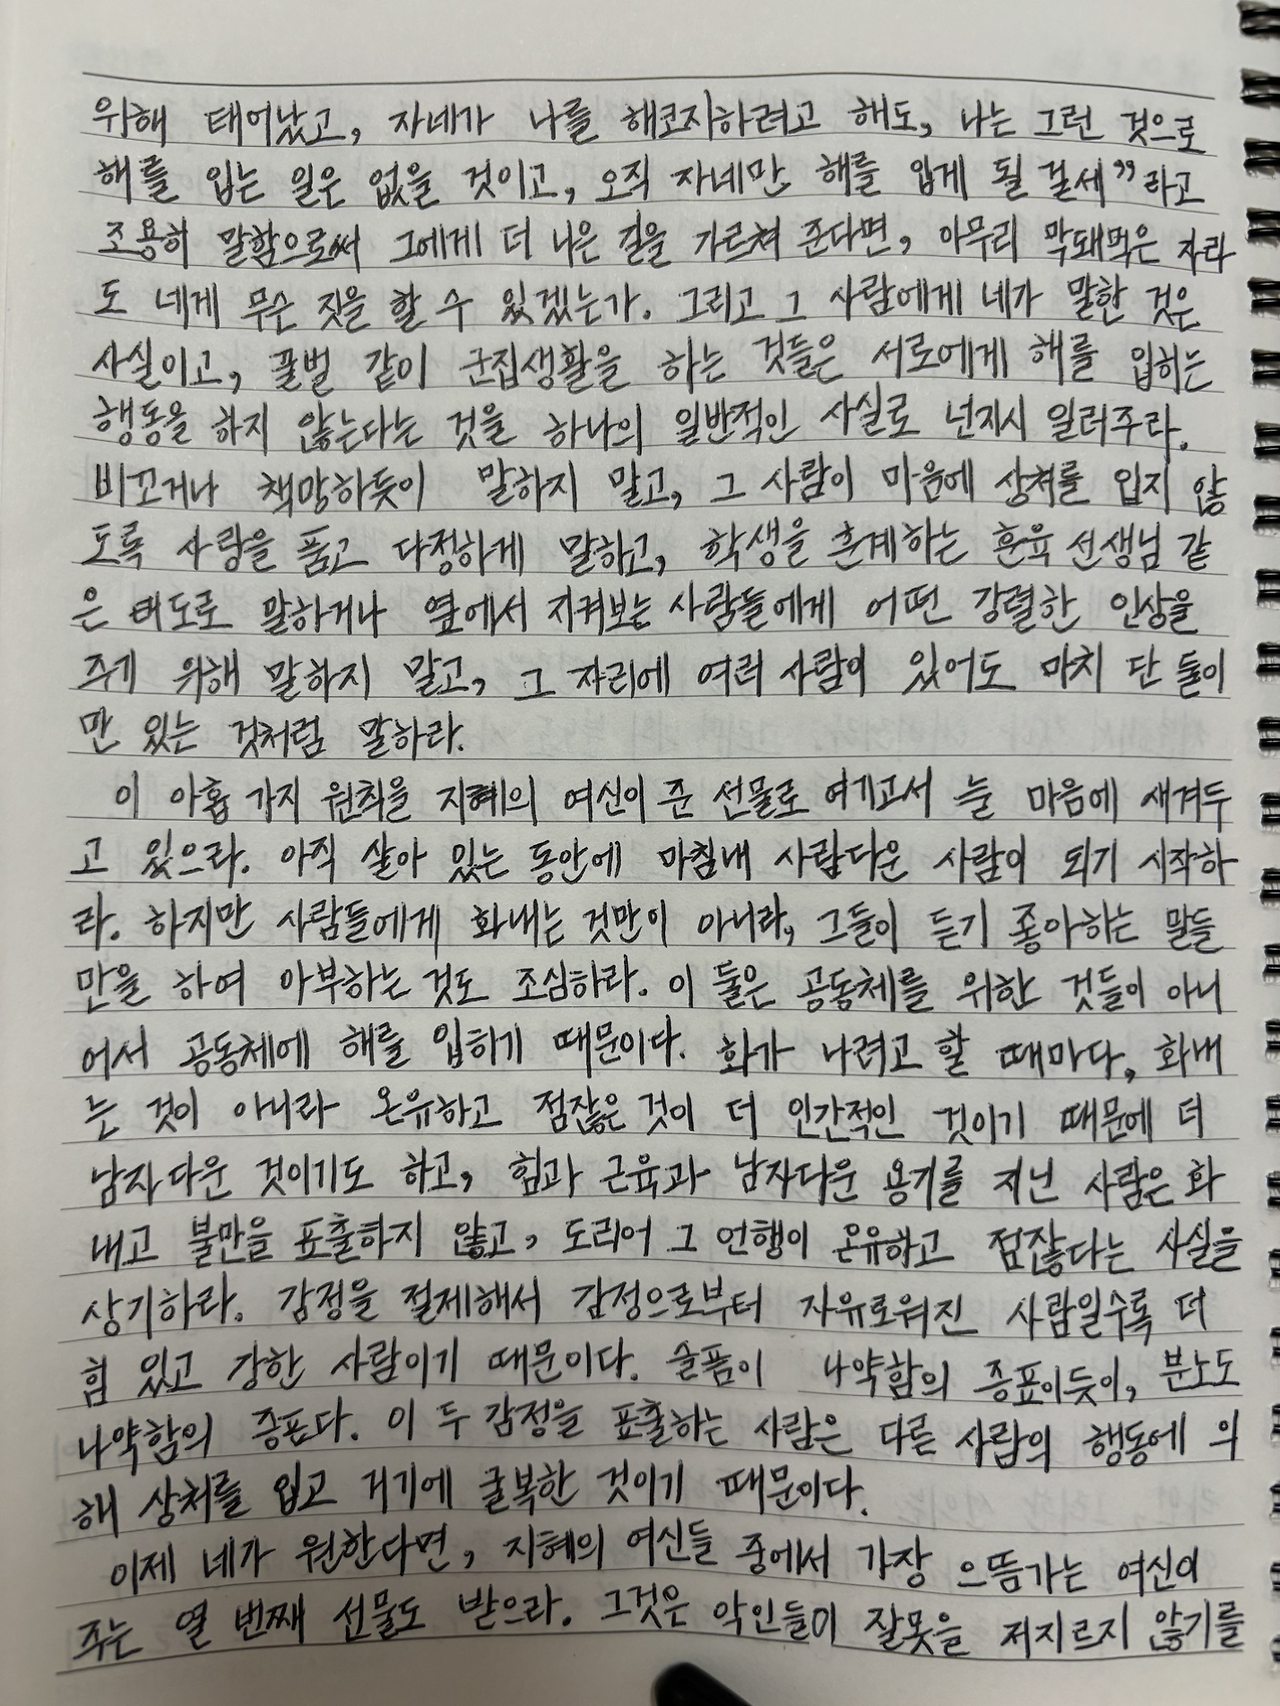 위해 태어났고, 자네가 나를 해코지하려고 해도, 나는 그런 것으로
해를 입는 일은 없을 것이고, 오직 자네만 해를 입게 될 걸세"라고
조용히 말함으로써 그에게 더 나은 길을 가르쳐 준다면, 아무리 막돼먹은 자라
도 네게 무슨 짓을 할 수 있겠는가. 그리고 그 사람에게 네가 말한 것은
사실이고, 꿀벌 같이 군집생활을 하는 것들은 서로에게 해를 입히는
행동을 하지 않는다는 것을 하나의 일반적인 사실로 넌지시 일러주라.
비꼬거나 책망하듯이 말하지 말고, 그 사람이 마음에 상처를 입지 않
도록 사랑을 품고 다정하게 말하고, 학생을 훈계하는 훈육 선생님 같
은 태도로 말하거나 옆에서 지켜보는 사람들에게 어떤 강렬한 인상을
주기 위해 말하지 말고, 그 자리에 여러 사람이 있어도 마치 단 둘이
만 있는 것처럼 말하라.
이 아홉 가지 원칙을 지혜의 여신이 준 선물로 여기고서 늘 마음에 새겨두
고 있으라. 아직 살아 있는 동안에 마침내 사람다운 사람이 되기 시작하
라. 하지만 사람들에게 화내는 것만이 아니라, 그들이 듣기 좋아하는 말들
만을 하여 아부하는 것도 조심하라. 이 둘은 공동체를 위한 것들이 아니
어서 공동체에 해를 입히기 때문이다. 화가 나려고 할 때마다, 화내
는 것이 아니라 온유하고 점잖은 것이 더 인간적인 것이기 때문에 더
남자다운 것이기도 하고, 힘과 근육과 남자다운 용기를 지닌 사람은 화
내고 불만을 표출하지 않고, 도리어 그 언행이 온유하고 점잖다는 사실을
상기하라. 감정을 절제해서 감정으로부터 자유로워진 사람일수록 더
힘 있고 강한 사람이기 때문이다. 슬픔이 나약함의 증표이듯이, 분노도
나약함의 증표다. 이 두 감정을 표출하는 사람은 다른 사람의 행동에 의
해 상처를 입고 거기에 굴복한 것이기 때문이다.
이제 네가 원한다면, 지혜의 여신들 중에서 가장 으뜸가는 여신이
주는 열 번째 선물도 받으라. 그것은 악인들이 잘못을 저지르지 않기를